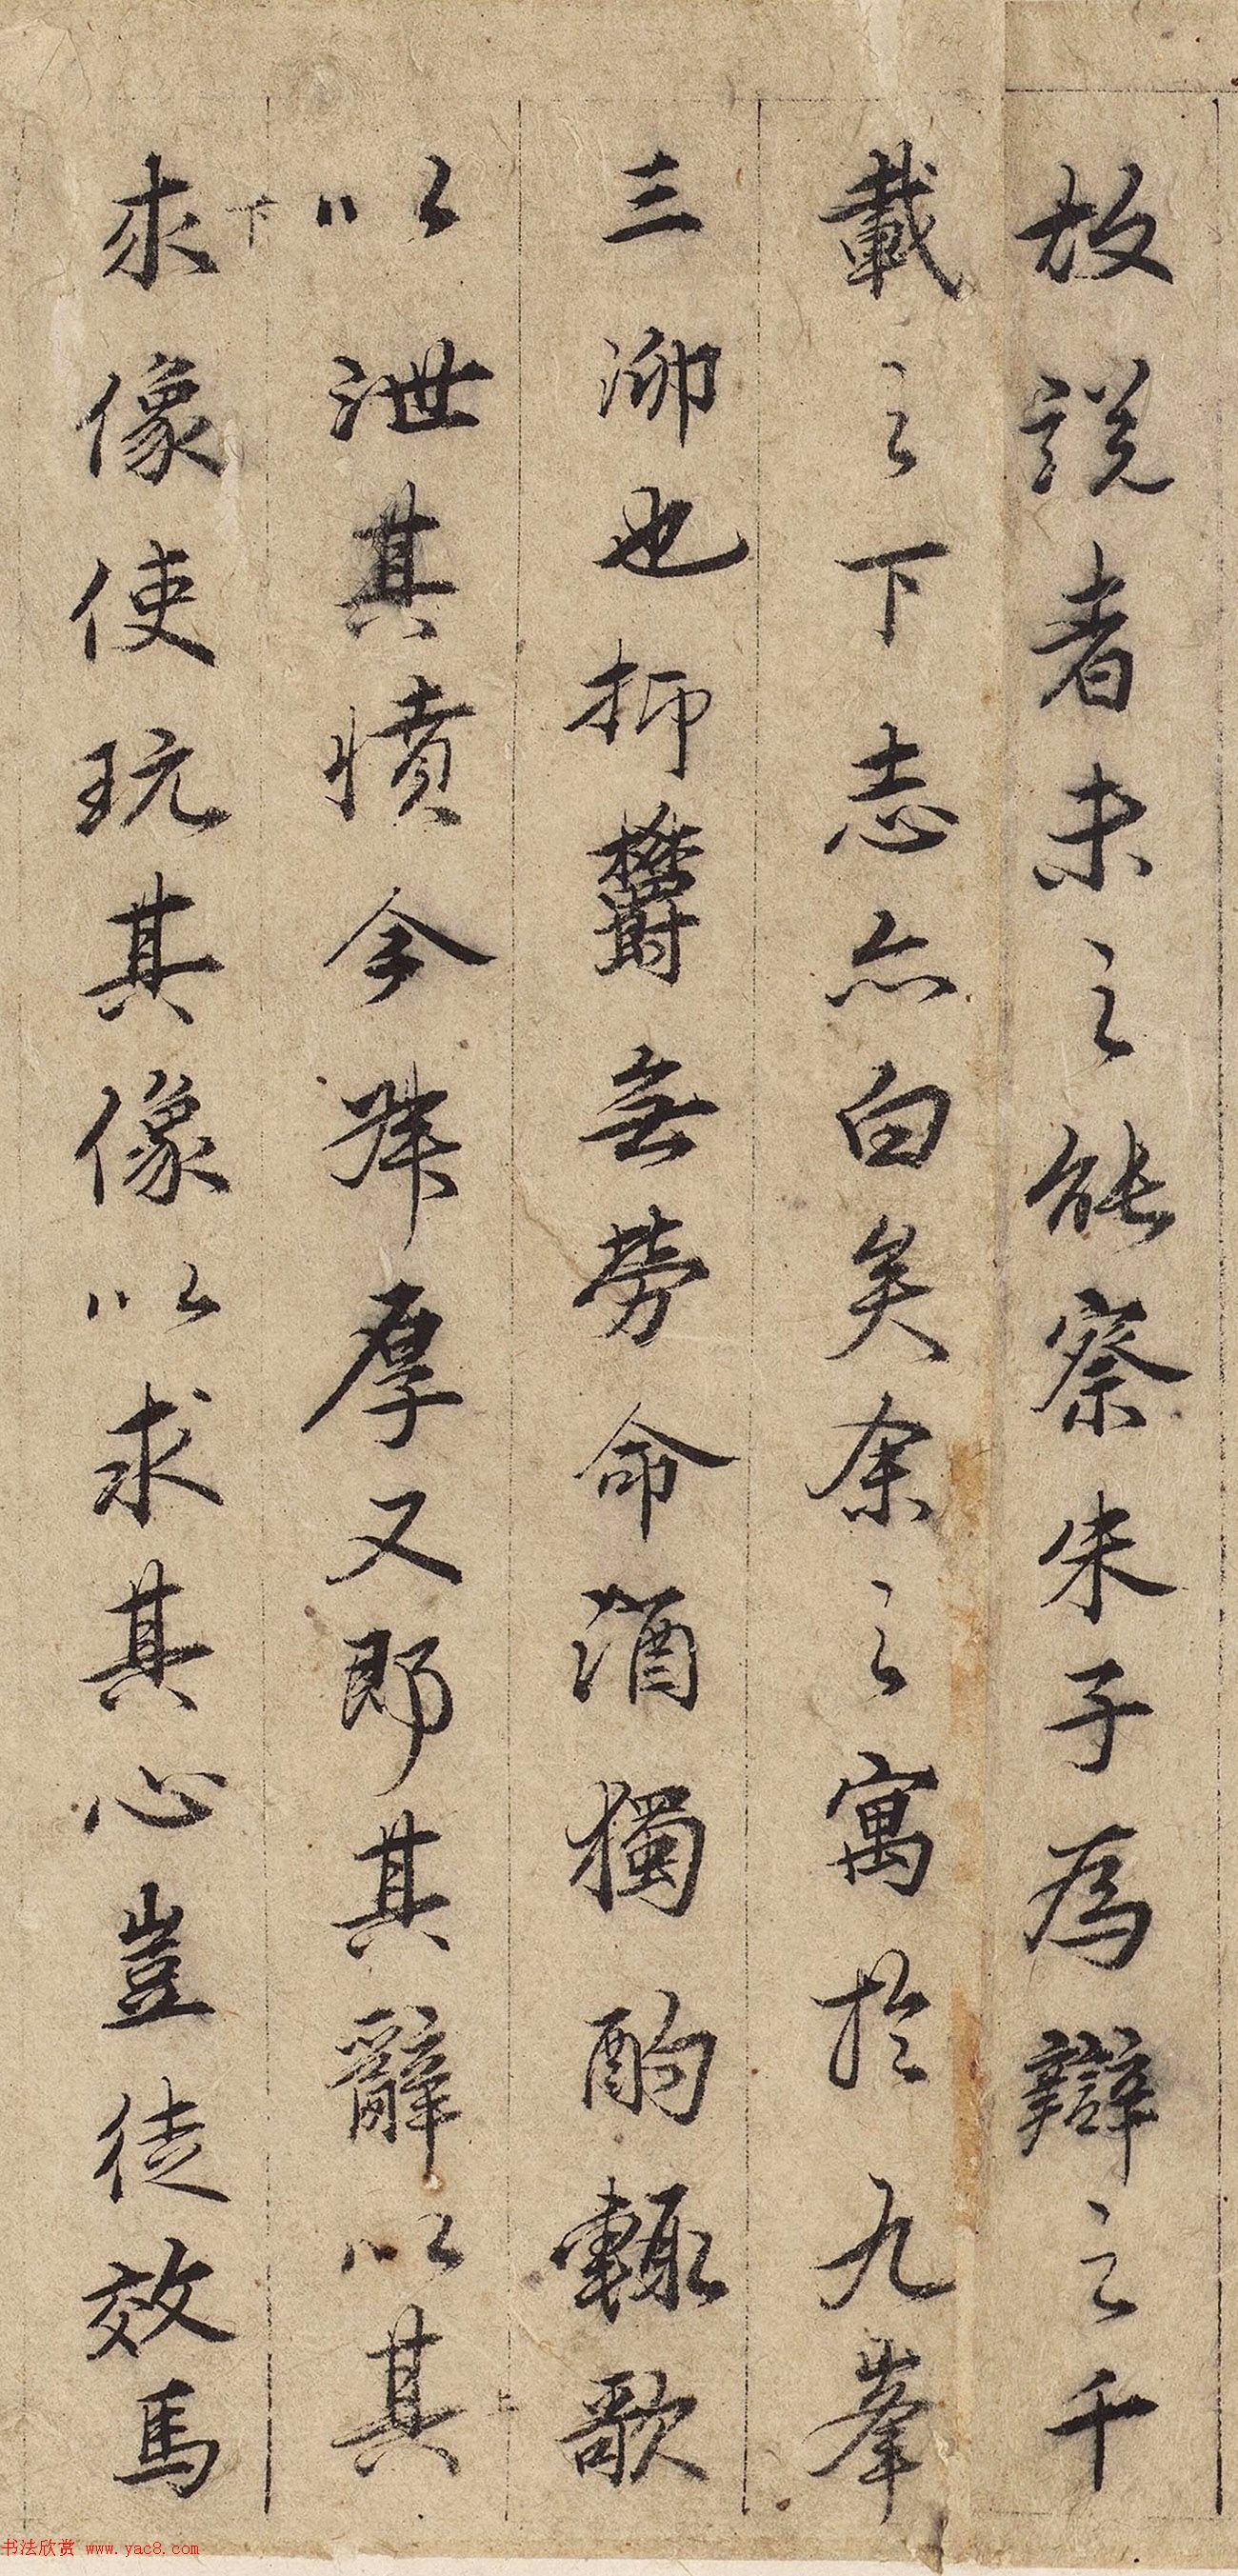 故說者未之能察朱子為辯之千
載之下志亦白矣余之寓於九峯
三泖也抑鬱無命酒獨酌輒歌
以泄其憤今叔厚又即其辭以其
上
下
求像使玩其像以求其心豈徒效馬
书法欣赏 www.yac8.com